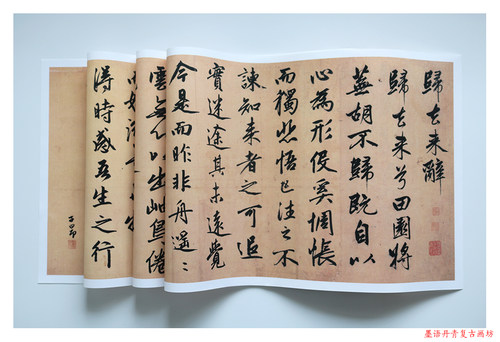 歸去来辭
歸去来兮田園將
蕪胡不歸既自以
心為形役奚惆悵
而獨悲悟已往之不
諫知来者之可追
實迷途其未遠覺
今是而昨非舟遥〻
雲無心以出岫鳥倦
得時感吾生之行
子昂
墨语丹青复古画坊